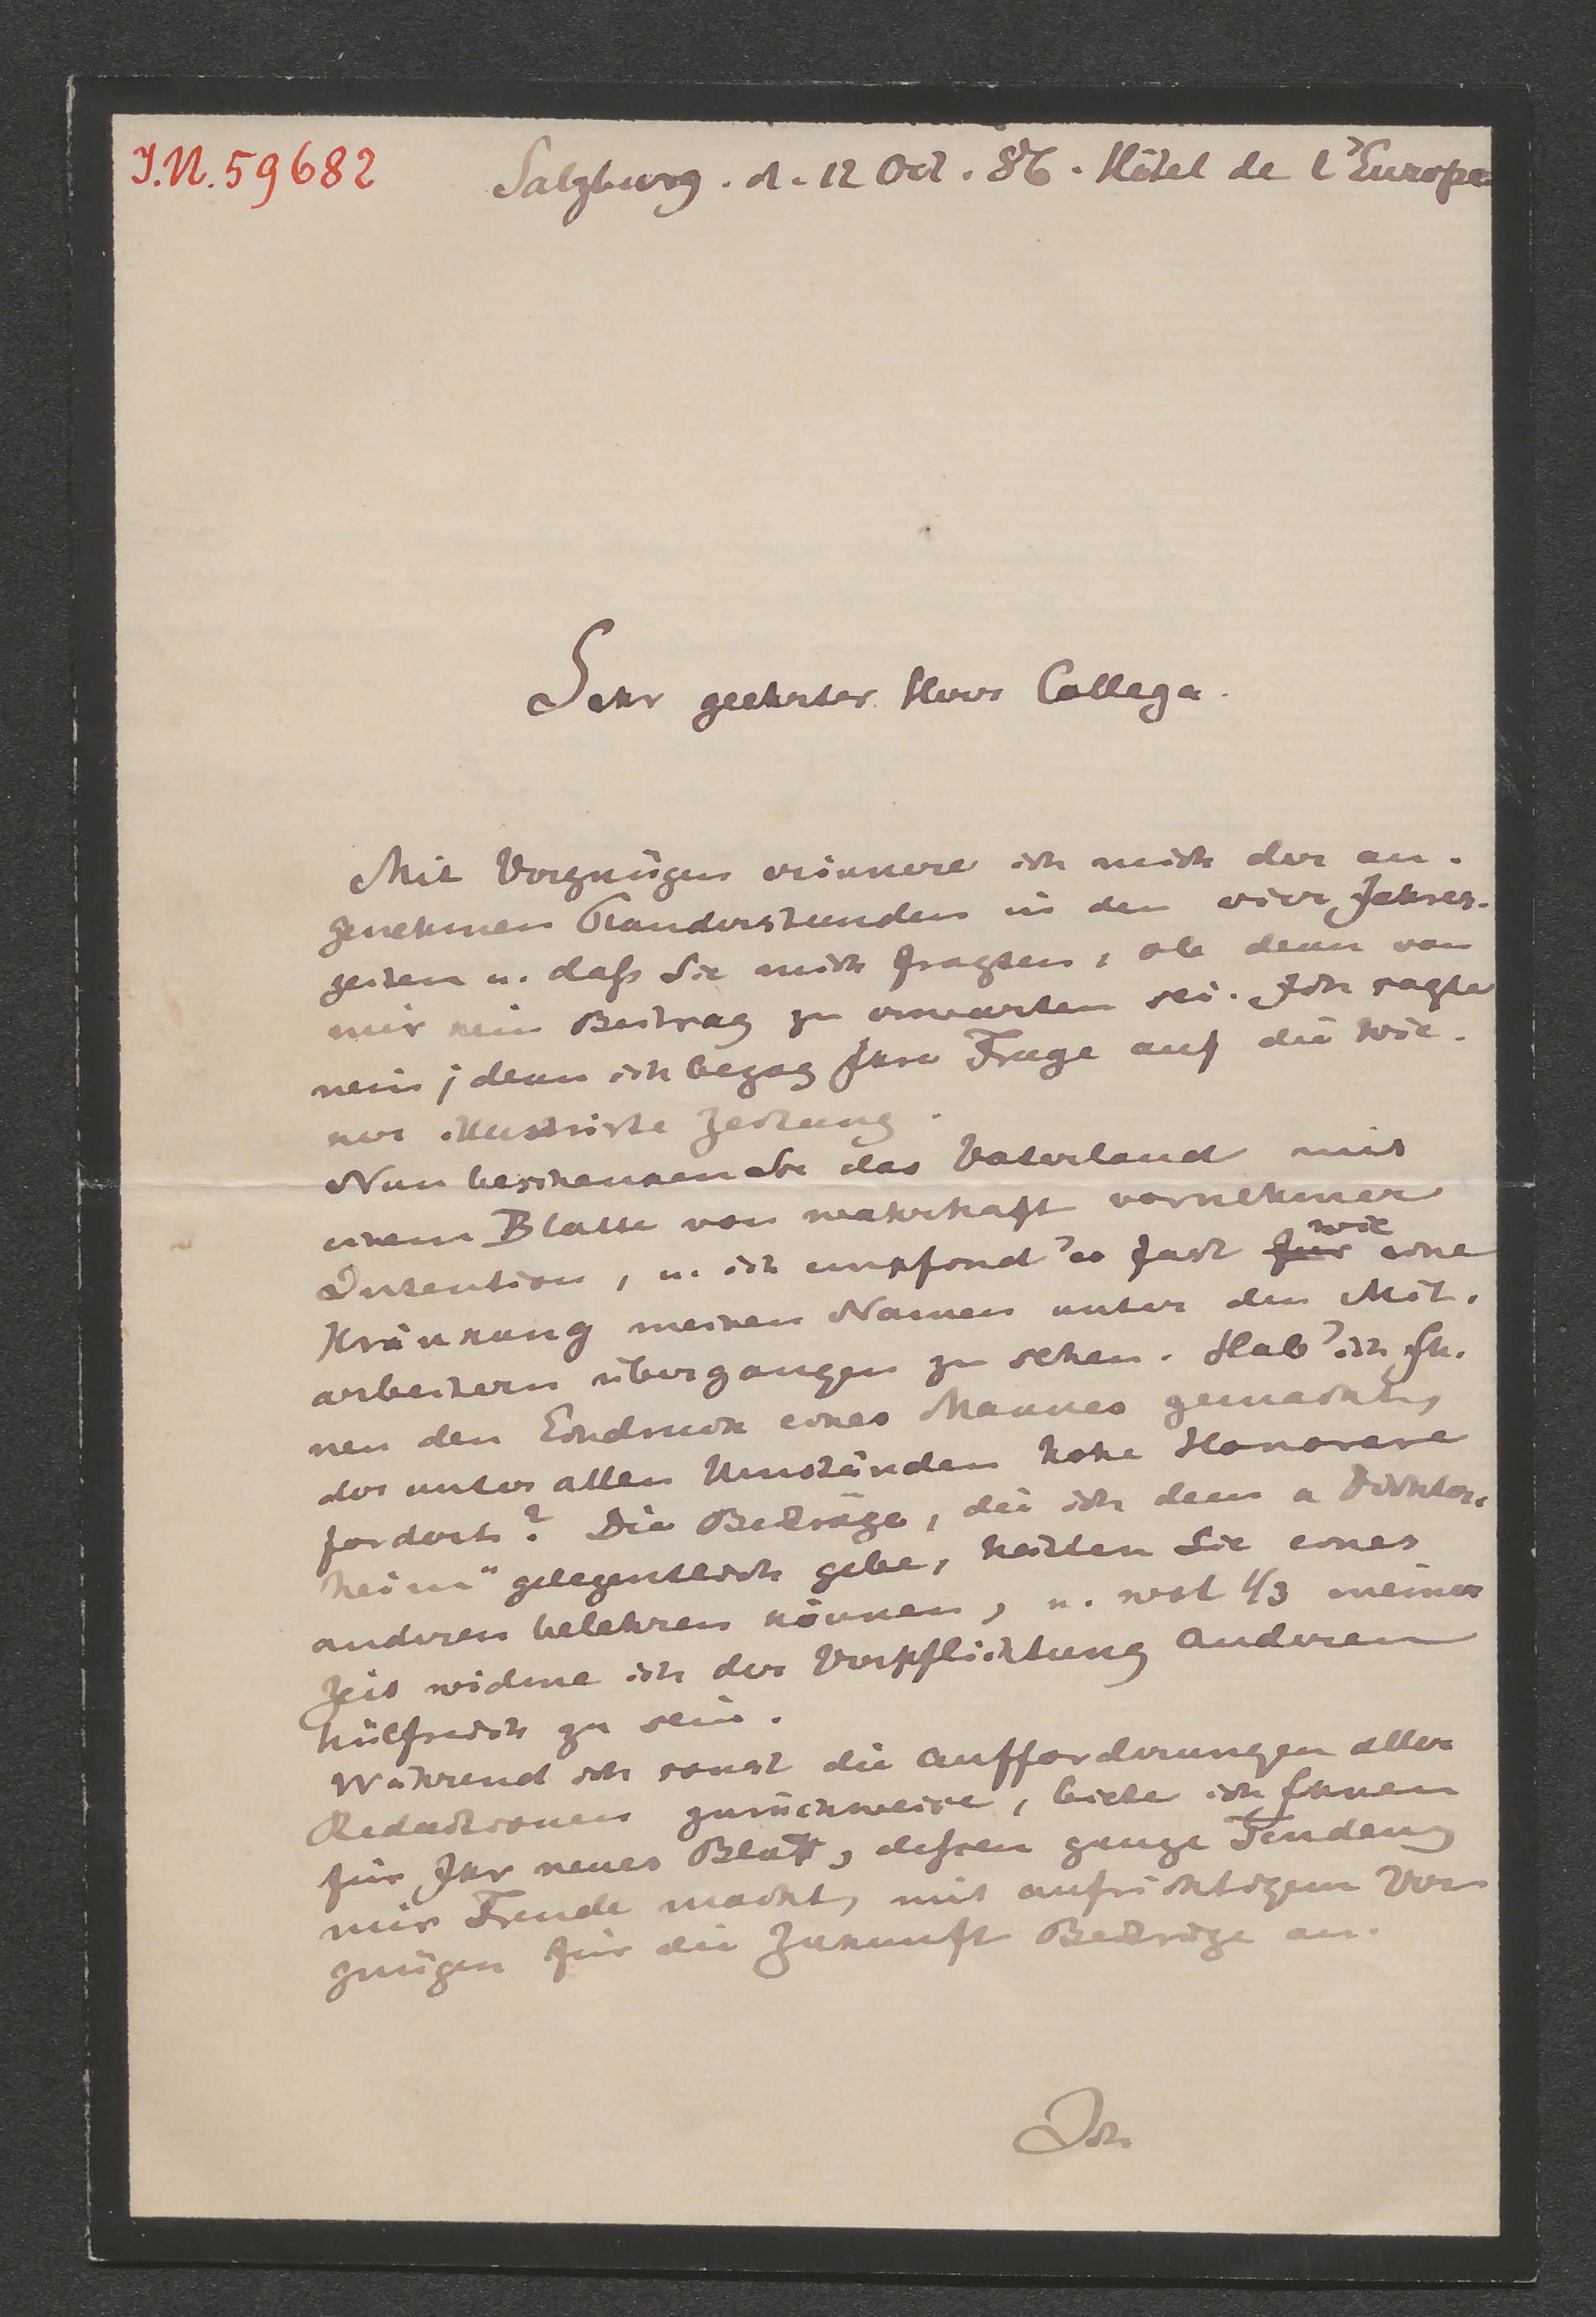 I.N. 59682
Salzburg. d. 12 Oct. 86. Hôtel de l'Europe
Sehr geehrter Herr Collega.
Mit Vergnügen erinnere ich mich der an-
genehmen Plauderstunden in den vier Jahres-
zeiten u. daß Sie mich fragten, ob denn von
mir kein Beitrag zu erwarten sei. Ich sagte
nein; denn ich bezog Ihre Frage auf die Wie-
ner illustrirte Zeitung.
Nun beschenken Sie das Vaterland mit
einem Blatte von wahrhaft vornehmer
Intention, u. ich empfand's fast für wie eine
Kränkung meinen Namen unter den Mit-
arbeitern übergangen zu sehen. Hab' ich Ih-
nen den Eindruck eines Mannes gemacht,
der unter allen Umständen hohe Honorare
fordert? Die Beiträge, die ich dem „Dichter-
heim“ gelegentlich gebe, hätten Sie eines
anderen belehren können, u. wol 1/3 meiner
Zeit widme ich der Verpflichtung Anderen
hülfreich zu sein.
Während ich sonst die Aufforderungen aller
Redactionen zurückweise, biete ich Ihnen
für Ihr neues Blatt, deßen ganze Tendenz
mir Freude macht, mit aufrichtigem Ver-
gnügen für die Zukunft Beiträge an.
Ich